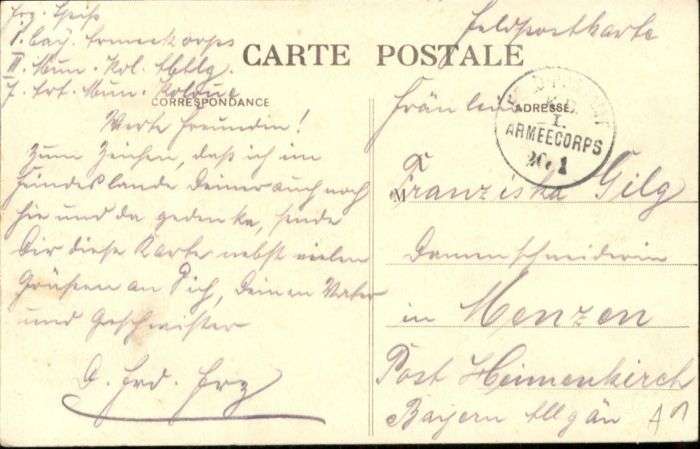 I. bay. Armeekorps
II. Mun. Kol. Abtlg.
Feldpostkarte
CARTE POSTALE
CORRESPONDANCE
Werte Freundin!
Zum Zeichen, daß ich im
Feindeslande Deiner auch noch
hie und da gedenke, sende
Dir diese Karte nebst vielen
Grüßen an Dich, Deinen Vater
und Geschwister
ADRESSE
I.
ARMEECORPS
Fräulein
M
Franziska Gilg
Damenschneiderin
in Menzen
Post Heimenkirch
Bayern Allgäu